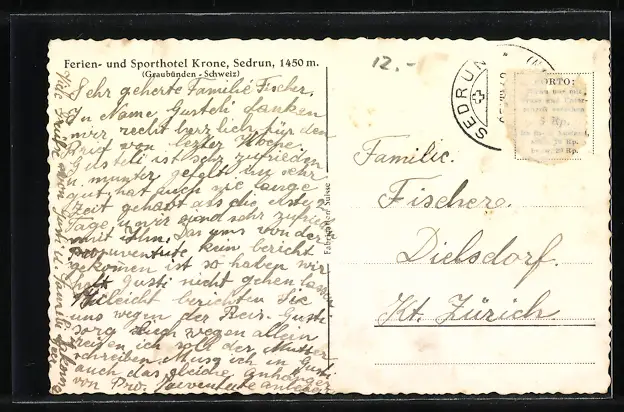 Ferien- und Sporthotel Krone, Sedrun, 1450 m.
(Graubünden - Schweiz)
Sehr geherte Familie Fischer.
In Name Gusteli danken
wir recht herzlich für den
Brif von lezter Woche
Gusteli ist sehr zufrieden
u. munter gefelt im sehr
gut, hat auch nie lange
Zeit gehabt als die erste 2
Tage, u wir sind sehr zufrieden
mit ihm. Das uns von der
projuventute kein bericht
gekomen ist so haben wir
halt Gusti nicht gehen lassen
Villeicht berichten Sie
uns wegen der Reis. Gusti
sorg Euch wegen allein
reisen ich soll der Mutter
schreiben. Muss ich in Gusti
auch das gleiche anhänger
von Pro. Juventute
Viele Grüsse
Fabrication Suisse
12.-
SEDRUN
PORTO:
5 Rp.
Familie.
Fischer.
Dielsdorf.
Kt. Zürich.